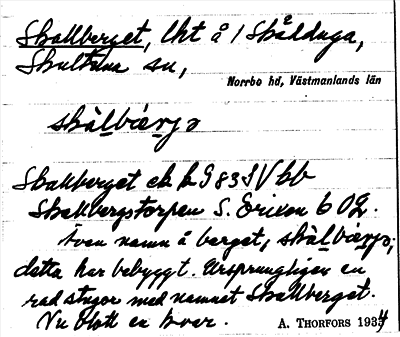 Skallberget, Uht å 1 Skålduga,
Skultuna sn,
Norrbo hd, Västmanlands län
skàlbæ̀rjə
Skallberget ek h G 83 S V bb
Skallbergstorpen S. Erixon b 02.
Även namn å berget, skàlbæ̀rjə;
detta har bebyggt. Ursprungligen en
rad stugor med namnet Skallberget.
Nu blott en kvar.
A. THORFORS 1934